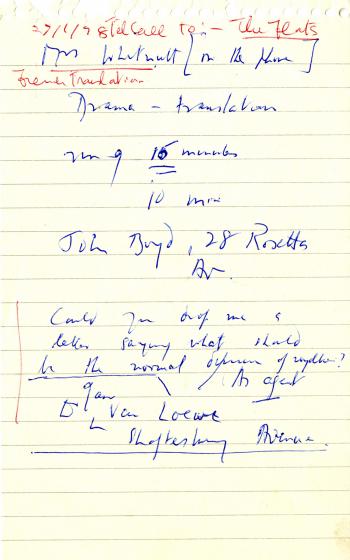 27/1/78 Tel Call to:- The Flats
Mrs Whitnutt [on the phone]
French Translation
Drama - translation
run of 15 minutes
10 min
John Boyd, 28 Rosetta
Av.
Could you drop me a
letter saying what should
be the normal of
As agent
Van Loewe
Shaftesbury Avenue.